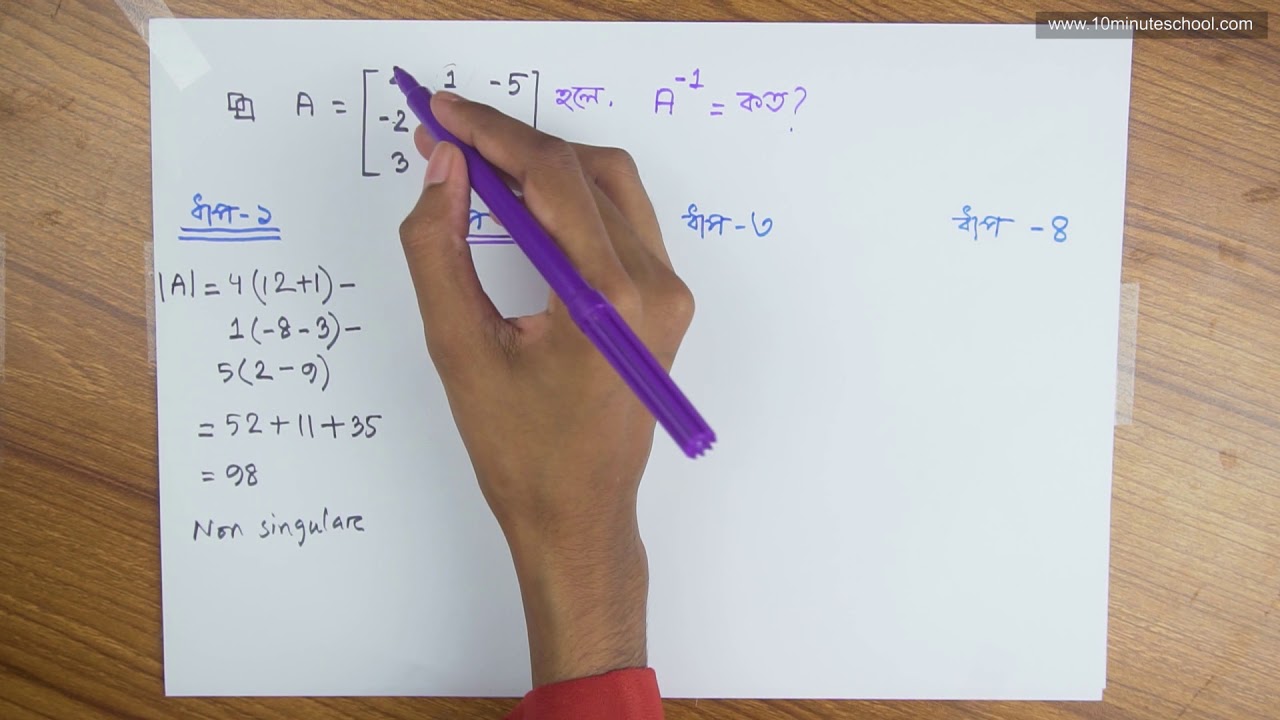 www.10minuteschool.com
A = [ 1 -5 ] হলে. A⁻¹ = কত?
-2
3
ধাপ-১ প ধাপ-৩ ধাপ -৪
|A| = 4(12+1) -
1(-8-3) -
5(2-9)
= 52+11+35
= 98
Non singulare